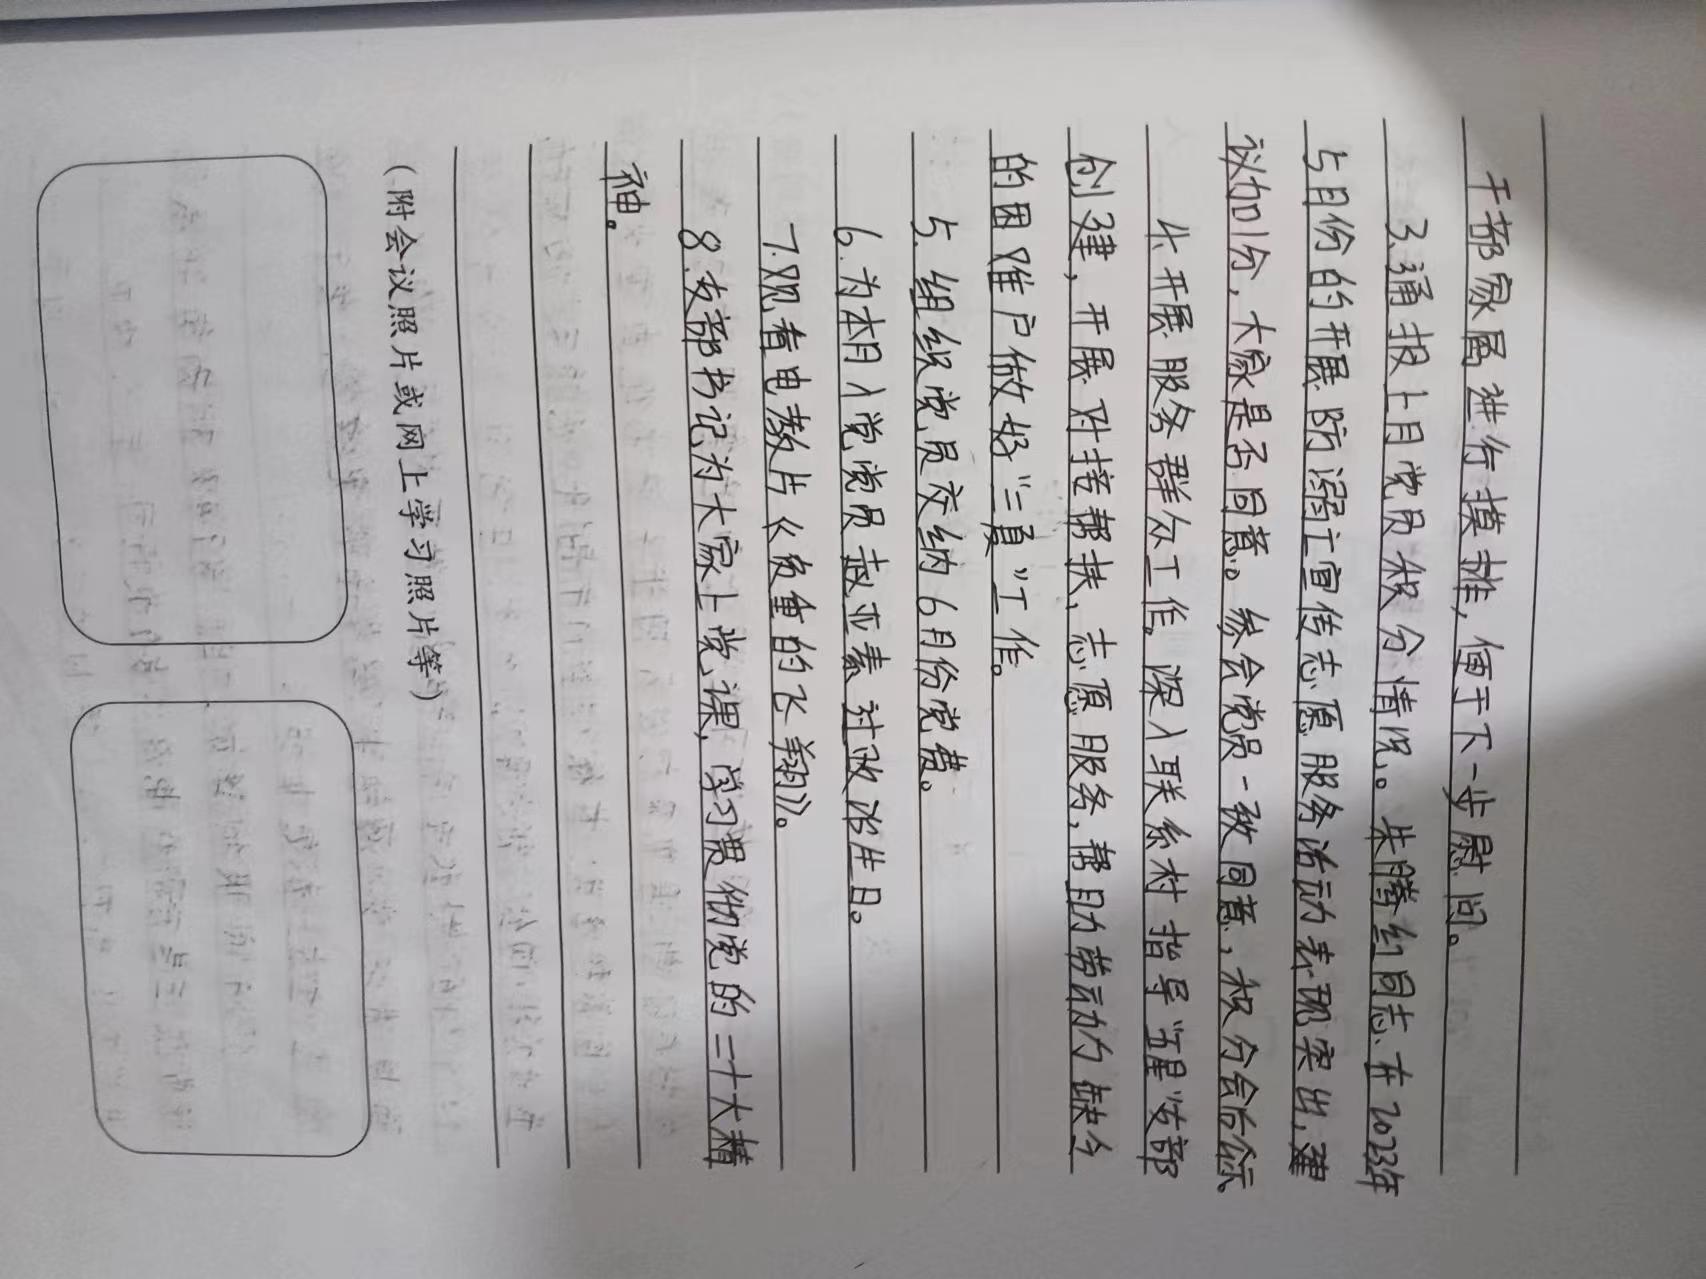 干部家属进行摸排，便于下一步慰问。
3.通报上月党员积分情况。朱腾红同志在2023年
5月份的开展防溺亡宣传志愿服务活动表现突出，建
议加1分，大家是否同意。参会党员一致同意，积分会后公示。
4.开展服务群众工作，深入联系村指导“五星”支部
创建，开展对接帮扶、志愿服务，帮助劳动力缺乏
的困难户做好“三夏”工作。
5.组织党员交纳6月份党费。
6.为本月入党党员赵亚素过政治生日。
7.观看电教片《负重的飞翔》。
8.支部书记为大家上党课，学习贯彻党的二十大精
神。
（附会议照片或网上学习照片等）